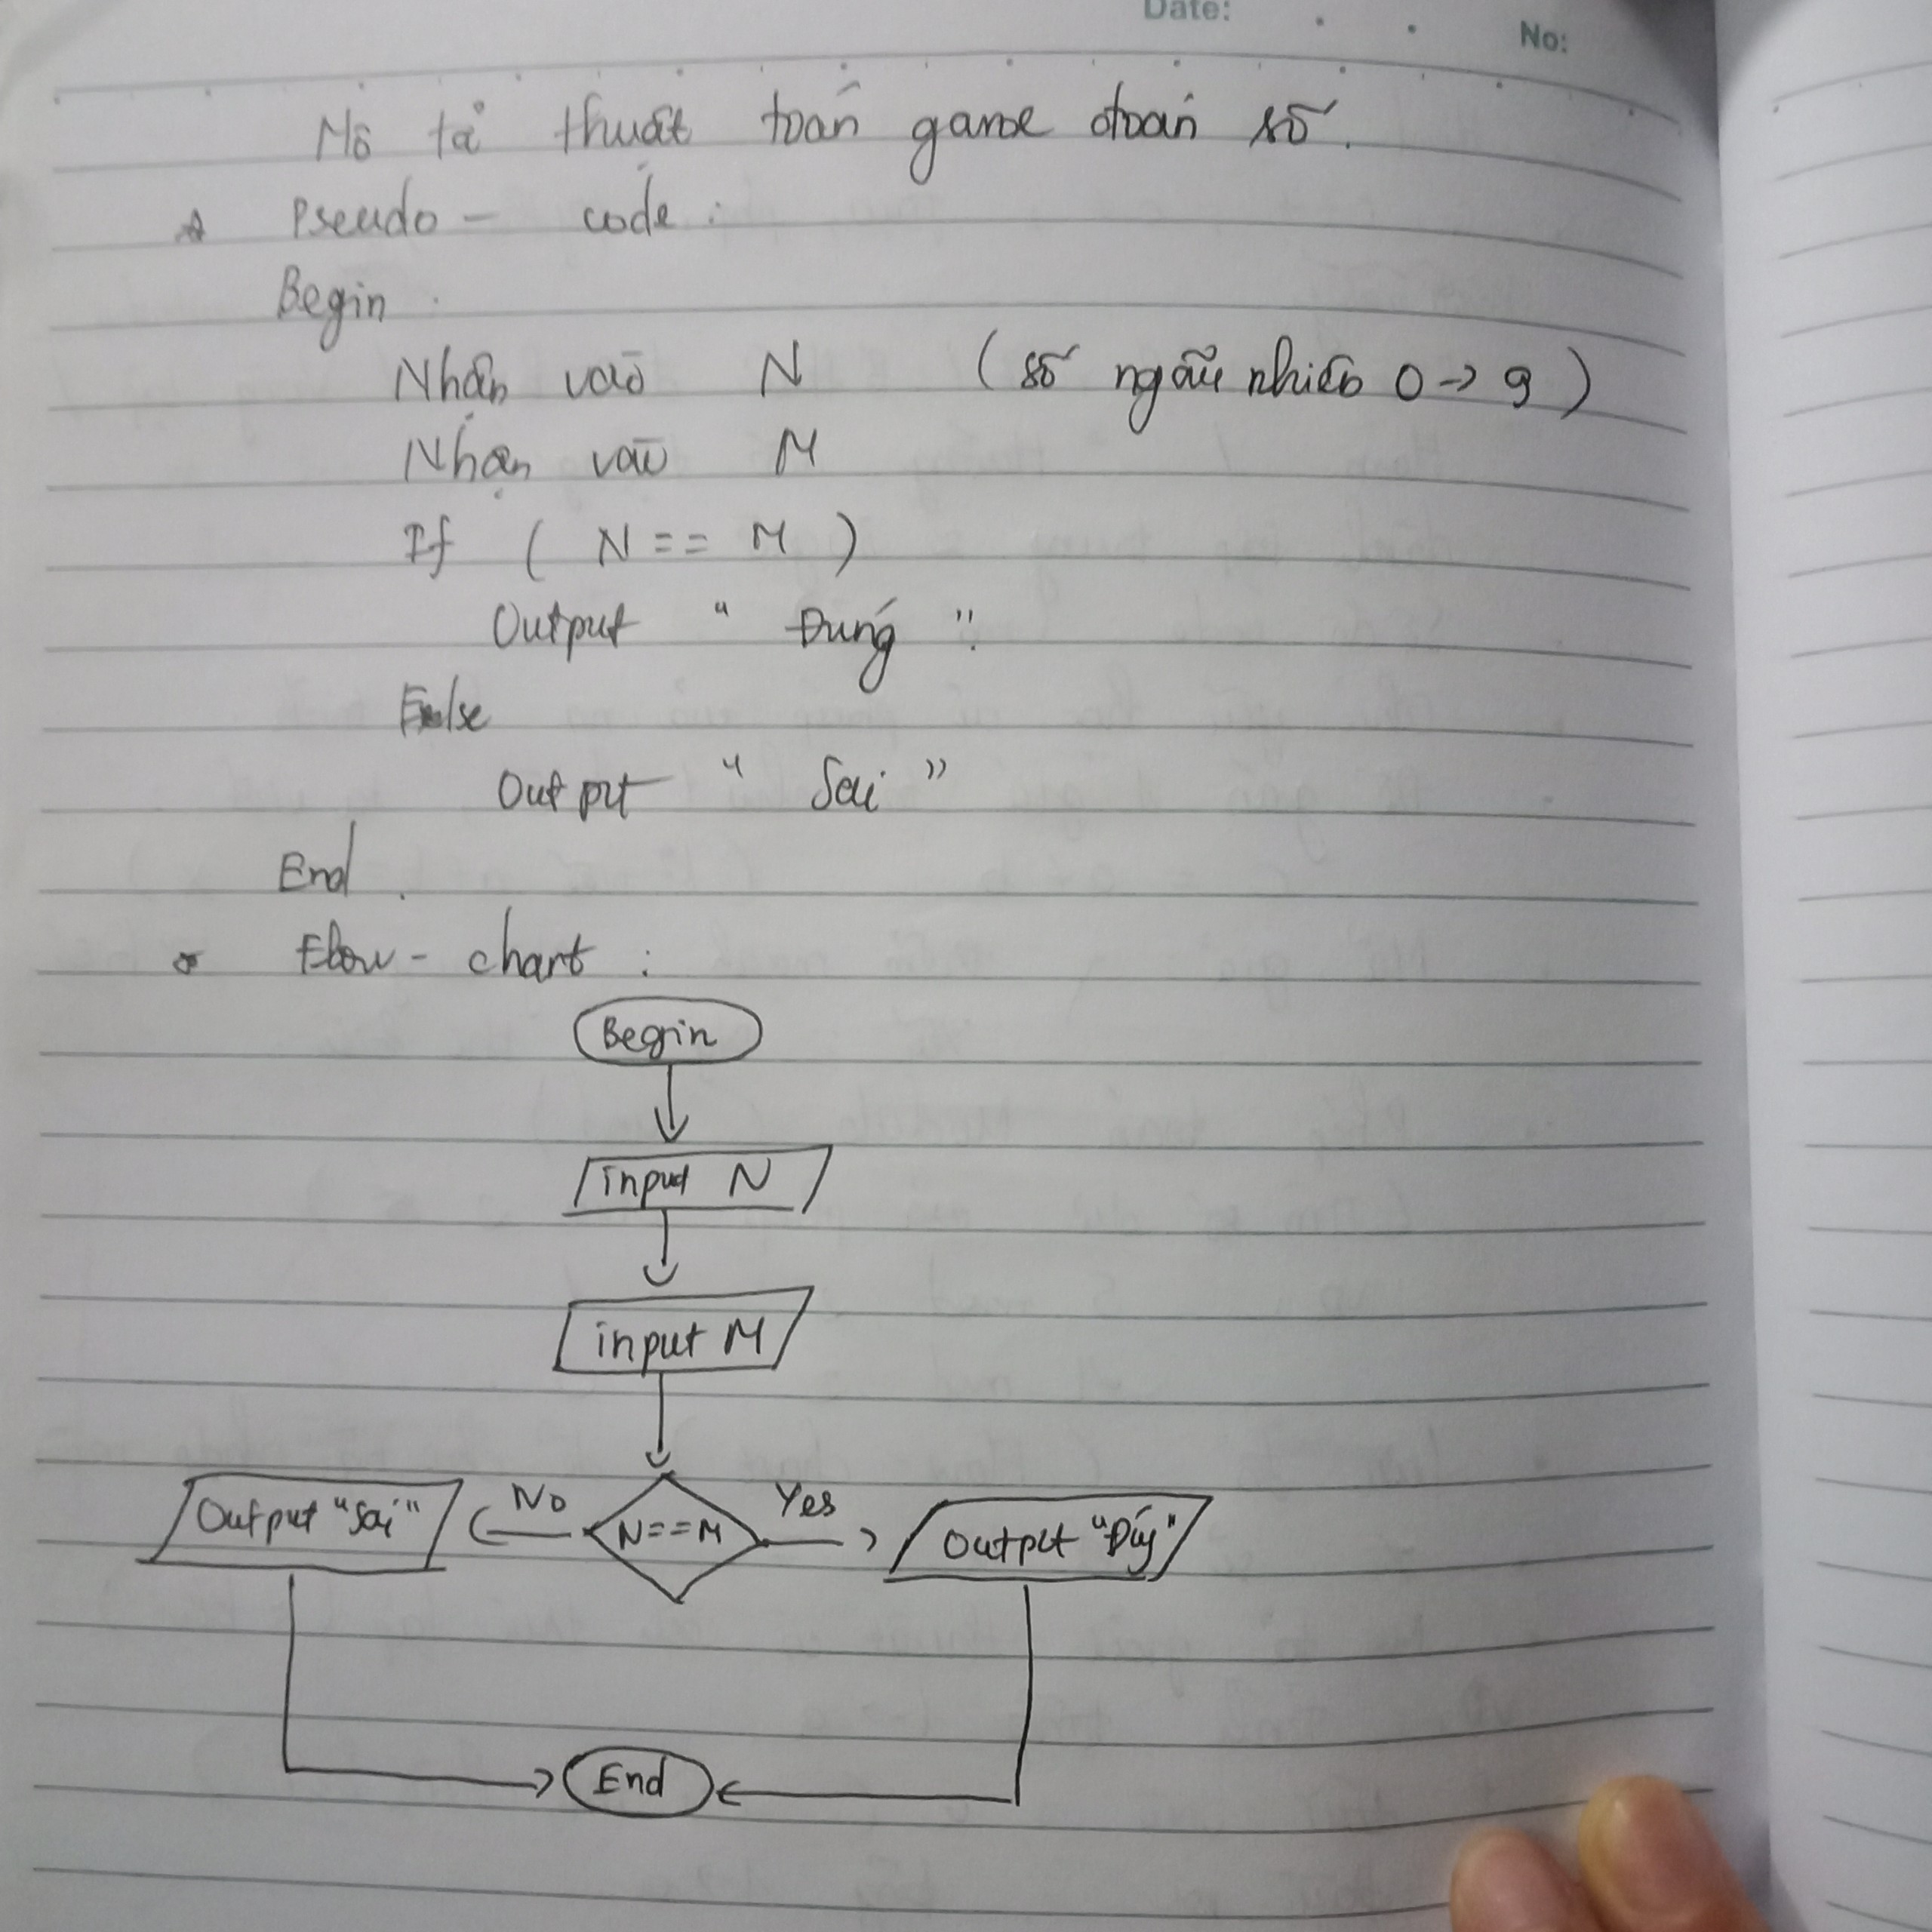 Date:
No:
Mô tả thuật toán game đoán số.
* Pseudo - code :
Begin
Nhận vào N ( số ngẫu nhiên 0 -> 9 )
Nhận vào M
If ( N == M )
Output " Đúng "
Else
Output " Sai "
End
* Flow - chart :
Begin
input N
input M
Output "Sai" No N==M Yes Output "Đúng"
End